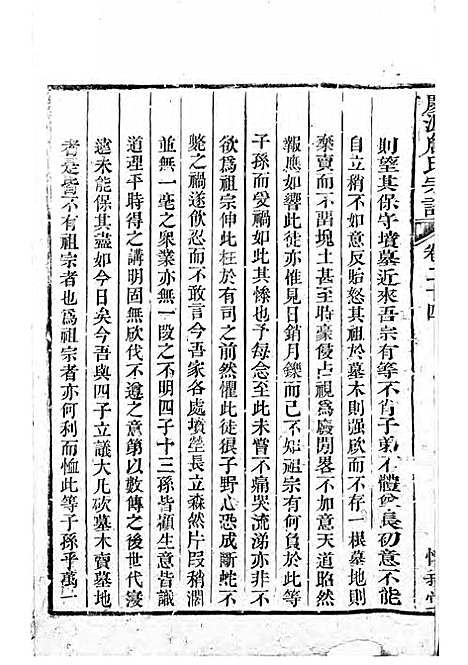 慶源詹氏宗譜 卷二十四
則望其保守墳墓近來吾宗有等不肖子弟不體 長初意不能
自立稍不如意反於墓木則強砍而不存一根墓地則
棄賣而不留塊土甚至時豪侵占視爲廢閒畧不如意天道昭然
報應如響此徒亦惟見日銷月鑠而已不知祖宗有何負於此
子孫而愛禍如此其慘也予每念至此未嘗不痛哭流涕亦非不
欲爲祖宗伸此枉於有司之前然懼此徒狠子野心恐成斷蛇不
斃之禍遂飲忍而不敢言今吾家各處墳塋長立森然片段稍濶
並無一毫之衆業亦無一段之不明四子十三孫皆頗生意皆識
道理平時得之講明固無砍伐不遵之意第以數傳之後世代
遠未能保其盡如今日矣今吾與四子立議大凡砍墓木賣墓地
者是皆不有祖宗者也爲祖宗者亦何利而恤此等子孫乎萬一